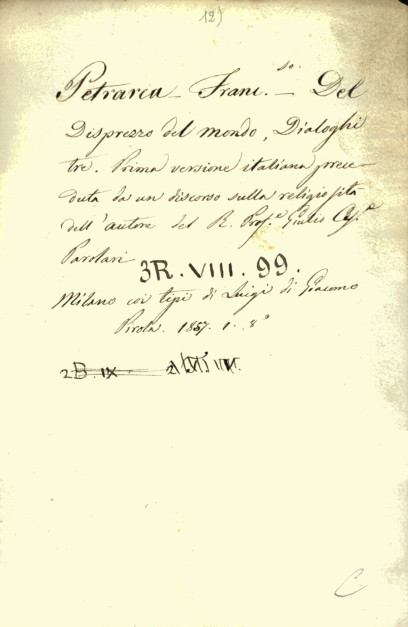 12)
Petrarca - Franc.so - Del
Disprezzo del mondo, Dialoghi
tre. Prima versione italiana prece-
duta da un discorso sulla religiosità
dell'autore del R. Prof.e Giulio
Parolari
3R. VIII. 99.
Milano coi tipi di Luigi di Giacomo
Pirola. 1857. 1. 8°
2B. IX
C